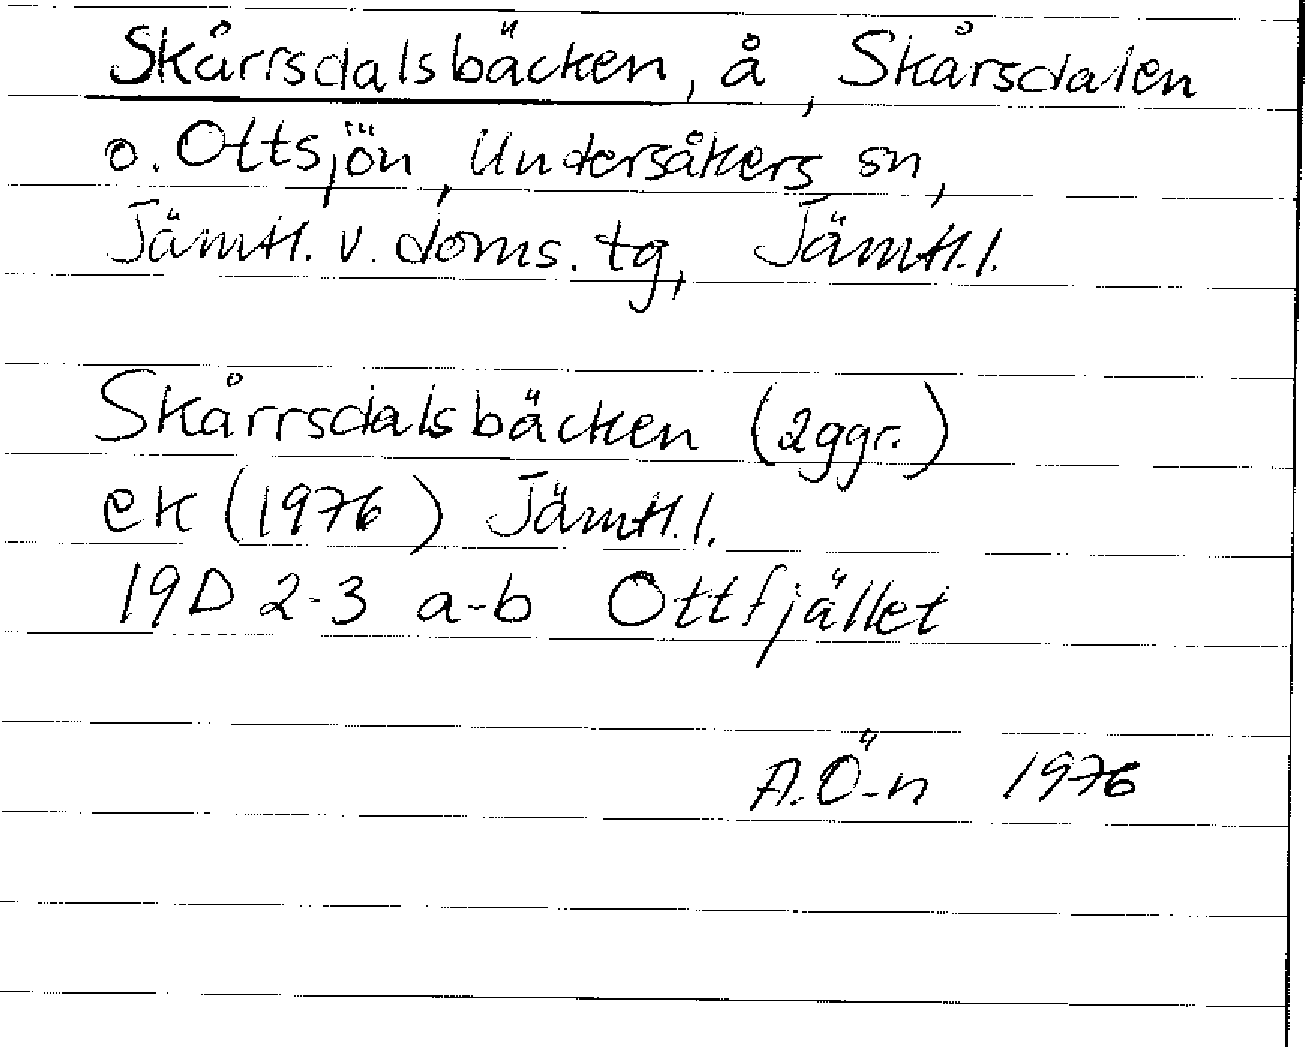 Skårrsdalsbäcken, å, Skårsdalen
o. Ottsjön, Undersåkers sn,
Jämtl. v. doms. tg, Jämtl.l.
Skårrsdalsbäcken (2ggr.)
ek (1976) Jämtl.l.
19D 2-3 a-b Ottfjället
A.Ö-n 1976